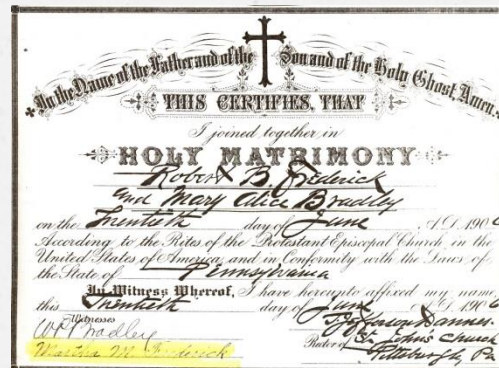 In the Name of the Father and of the Son and of the Holy Ghost, Amen.
THIS CERTIFIES, THAT
I joined together in
HOLY MATRIMONY
Robert B Frederick
and Mary Alice Bradley
on the Twentieth day of June A.D. 190
According to the Rites of the Protestant Episcopal Church in the
United States of America and in Conformity with the Laws of
the State of Pennsylvania
In Witness Whereof, I have hereunto affixed my name,
this Twentieth day of June A.D. 190
Witnesses
Bradley
Rector of St. Johns Church
Martha M. Frederick
Pittsburgh, Pa